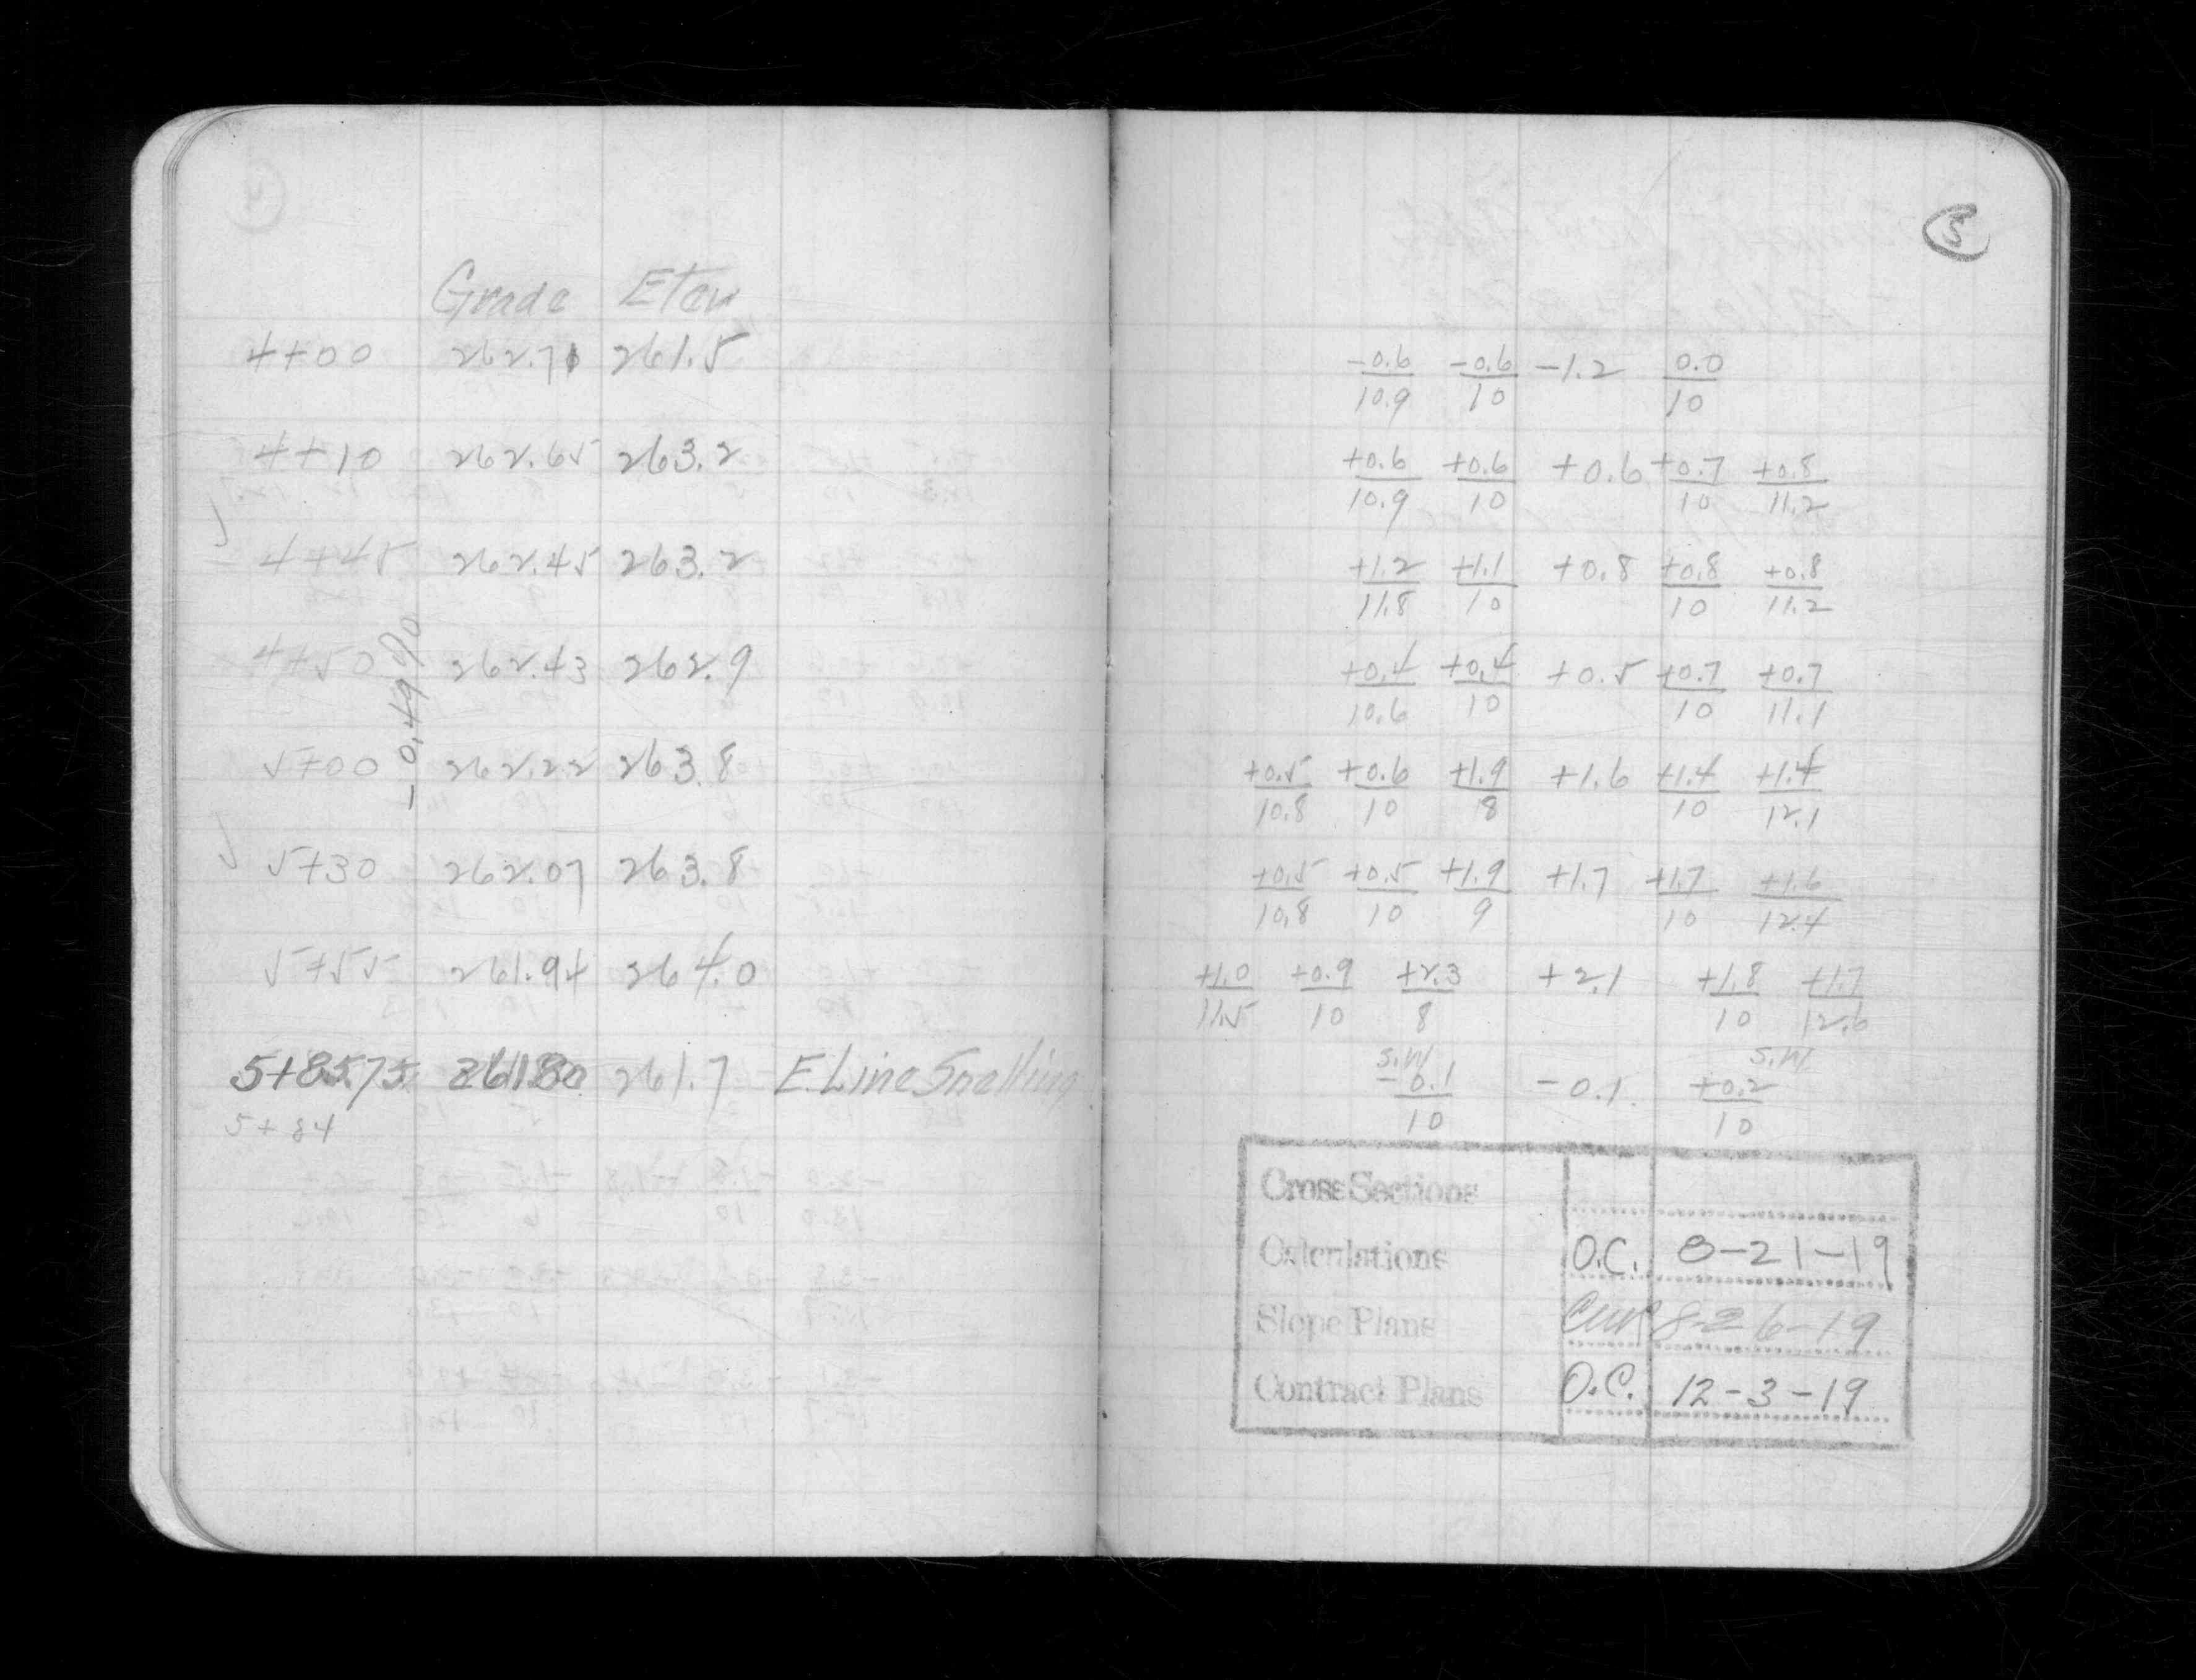 Grade Elev
4+00 262.71 261.5
4+10 262.65 263.2
4+45 262.45 263.2
4+50 262.43 262.9
-0.49%
5+00 262.22 263.8
5+30 262.07 263.8
5+55 261.94 264.0
5+85.75 261.80 261.7 E. Line Snelling
5+84
5
-0.6/10.9 -0.6/10 -1.2 0.0/10
+0.6/10.9 +0.6/10 +0.6 +0.7/10 +0.8/11.2
+1.2/11.8 +1.1/10 +0.8 +0.8/10 +0.8/11.2
+0.4/10.6 +0.4/10 +0.5 +0.7/10 +0.7/11.1
+0.5/10.8 +0.6/10 +1.9/8 +1.6 +1.4/10 +1.4/12.1
+0.5/10.8 +0.5/10 +1.9/9 +1.7 +1.7/10 +1.6/12.4
+1.0/11.5 +0.9/10 +2.3/8 +2.1 +1.8/10 +1.7/12.6
S.W. S.W.
-0.1/10 -0.1 +0.2/10
Cross Sections
Calculations O.C. 8-21-19
Slope Plans 8-26-19
Contract Plans O.C. 12-3-19